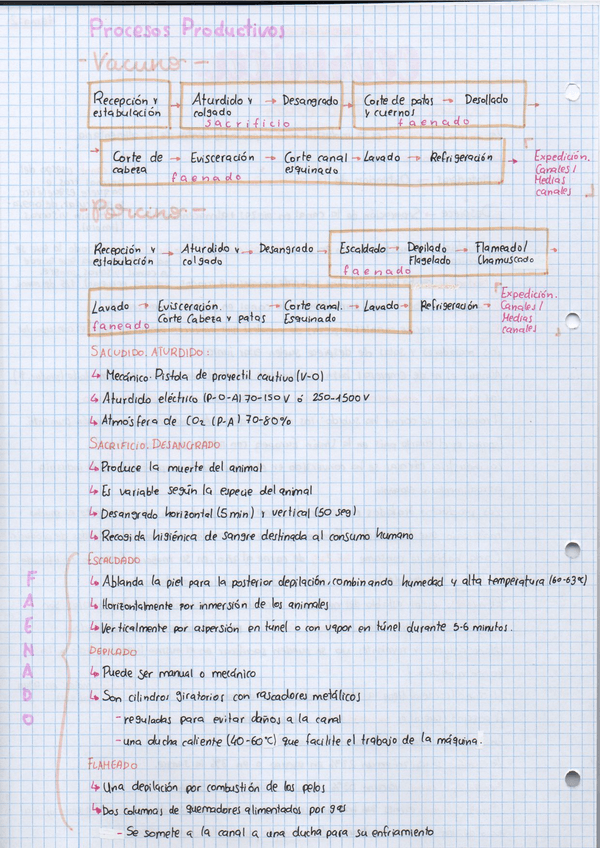 Procesos Productivos
- Vacuno -
Recepción y → Aturdido y → Desangrado → Corte de patas → Desollado →
estabulación colgado y cuernos
sacrificio faenado
→ Corte de → Evisceración → Corte canal → Lavado → Refrigeración → Expedición.
cabeza esquinado Canales/
faenado Medias
canales
- Porcino -
Recepción y → Aturdido y → Desangrado → Escaldado → Depilado → Flameado/ →
estabulación colgado Flagelado Chamuscado
faenado
Lavado → Evisceración. → Corte canal. → Lavado → Refrigeración → Expedición.
Corte Cabeza y patas Esquinado Canales/
faneado Medias
canales
SACUDIDO. ATURDIDO:
↳ Mecánico. Pistola de proyectil cautivo (V-O)
↳ Aturdido eléctrico (P-O-A) 70-150 V ó 250-1500 V
↳ Atmósfera de CO2 (P-A) 70-80%
SACRIFICIO. DESANGRADO
↳ Produce la muerte del animal
↳ Es variable según la especie del animal
↳ Desangrado horizontal (5 min) y vertical (50 seg)
↳ Recogida higiénica de sangre destinada al consumo humano
FAENADO
ESCALDADO
↳ Ablanda la piel para la posterior depilación, combinando humedad y alta temperatura (60-63ºC)
↳ Horizontalmente por inmersión de los animales
↳ Verticalmente por aspersión en túnel o con vapor en túnel durante 5-6 minutos.
DEPILADO
↳ Puede ser manual o mecánico
↳ Son cilindros giratorios con rascadores metálicos
- reguladas para evitar daños a la canal
- una ducha caliente (40-60ºC) que facilite el trabajo de la máquina.
FLAMEADO
↳ Una depilación por combustión de los pelos
↳ Dos columnas de quemadores alimentados por gas
- Se somete a la canal a una ducha para su enfriamiento